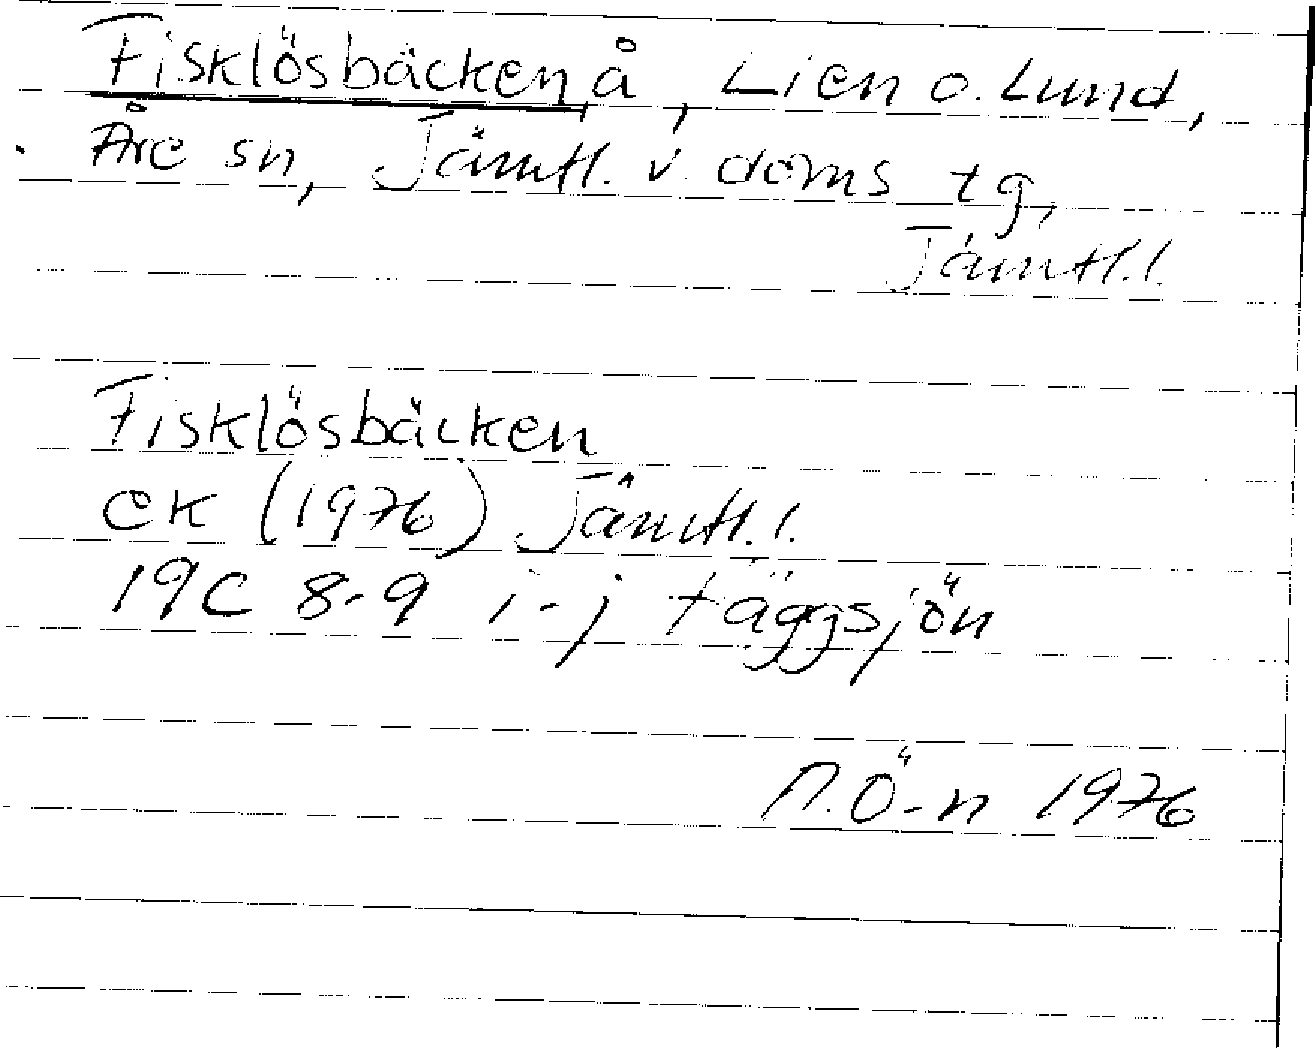 Fisklösbäcken, å, Lien o. Lund,
Åre sn, Jämtl. v. doms tg,
Jämtl.l.
Fisklösbäcken
ek (1976) Jämtl.l.
19C 8-9 i-j täggsjön
N.Ö-n 1976